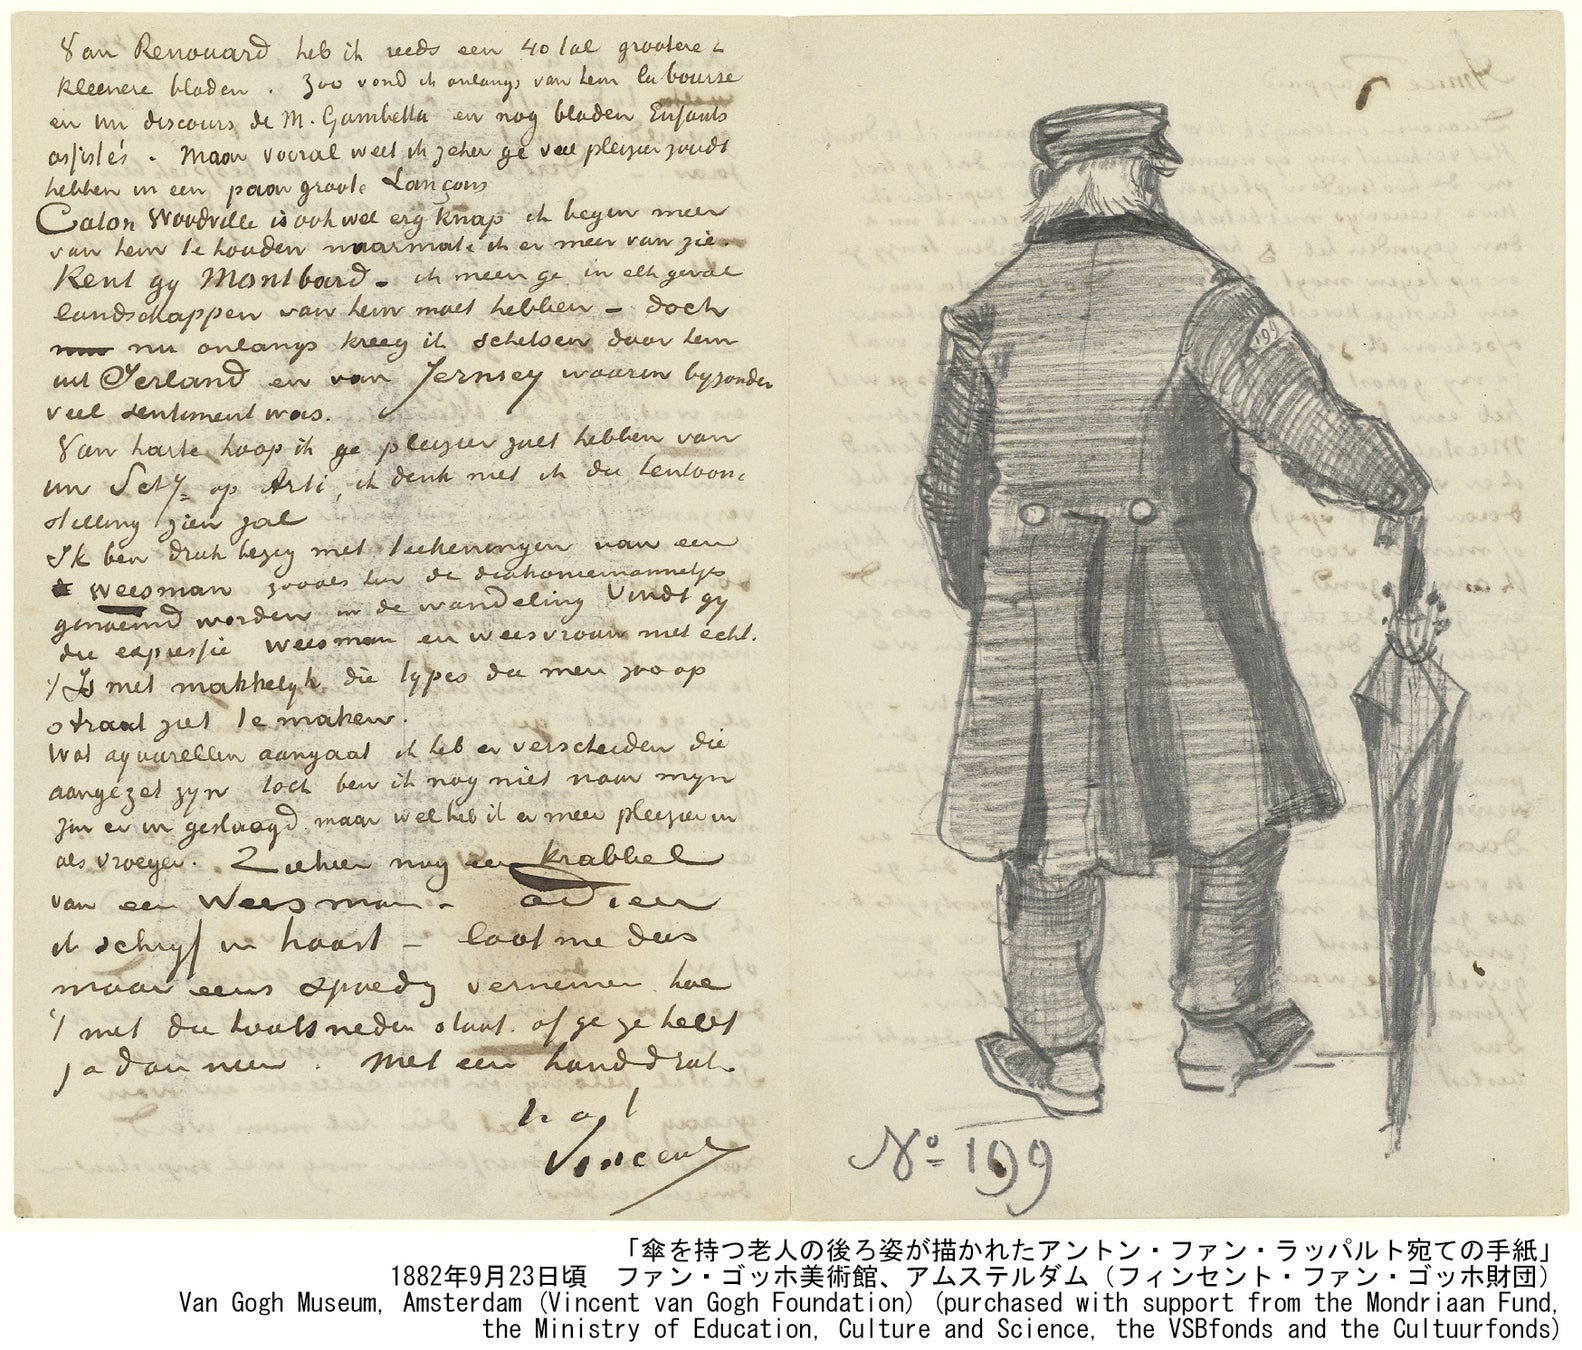 Van Renouard heb ik reeds een 40 tal grootere &
kleenere bladen. Zoo vond ik onlangs van hem la bourse
en un discours de M. Gambetta en nog bladen Enfants
assistés. Maar vooral weet ik zeker ge veel pleizier zoudt
hebben in een paar groote Lançons
Caton Woodville is ook wel erg knap ik begin meer
van hem te houden naarmate ik er meer van zie.
Kent gy Montbard – ik meen ge in elk geval
landschappen van hem moet hebben – doch
nu onlangs kreeg ik schetsen door hem
uit Ierland en van Jernsey waarin byzonder
veel sentiment was.
Van harte hoop ik ge pleizier zult hebben van
uw Schy op Arti, ik denk niet ik die tentoon=
stelling zien zal
Ik ben druk bezig met teekeningen van een
weesman zooals hier de diakoniemannetjes
genoemd worden in de wandeling Vindt gy
die expressie weesman en weesvrouw niet echt.
't Is niet makkelyk die types die men zoo op
straat ziet te maken.
Wat aquarellen aangaat ik heb er verscheiden die
aangezet zyn toch ben ik nog niet naar myn
zin er in geslaagd. maar wel heb ik er meer pleizier in
als vroeger. Ziehier nog een krabbel
van een Weesman – adieu
ik schryf in haast – laat me dus
maar eens spoedig vernemen hoe
't met die houtsneden staat. of ge ze hebt
ja dan neen. Met een handdruk.
t. à t.
Vincent
199
No 199
「傘を持つ老人の後ろ姿が描かれたアントン・ファン・ラッパルト宛ての手紙」
1882年9月23日頃　ファン・ゴッホ美術館、アムステルダム（フィンセント・ファン・ゴッホ財団）
Van Gogh Museum, Amsterdam (Vincent van Gogh Foundation) (purchased with support from the Mondriaan Fund,
the Ministry of Education, Culture and Science, the VSBfonds and the Cultuurfonds)